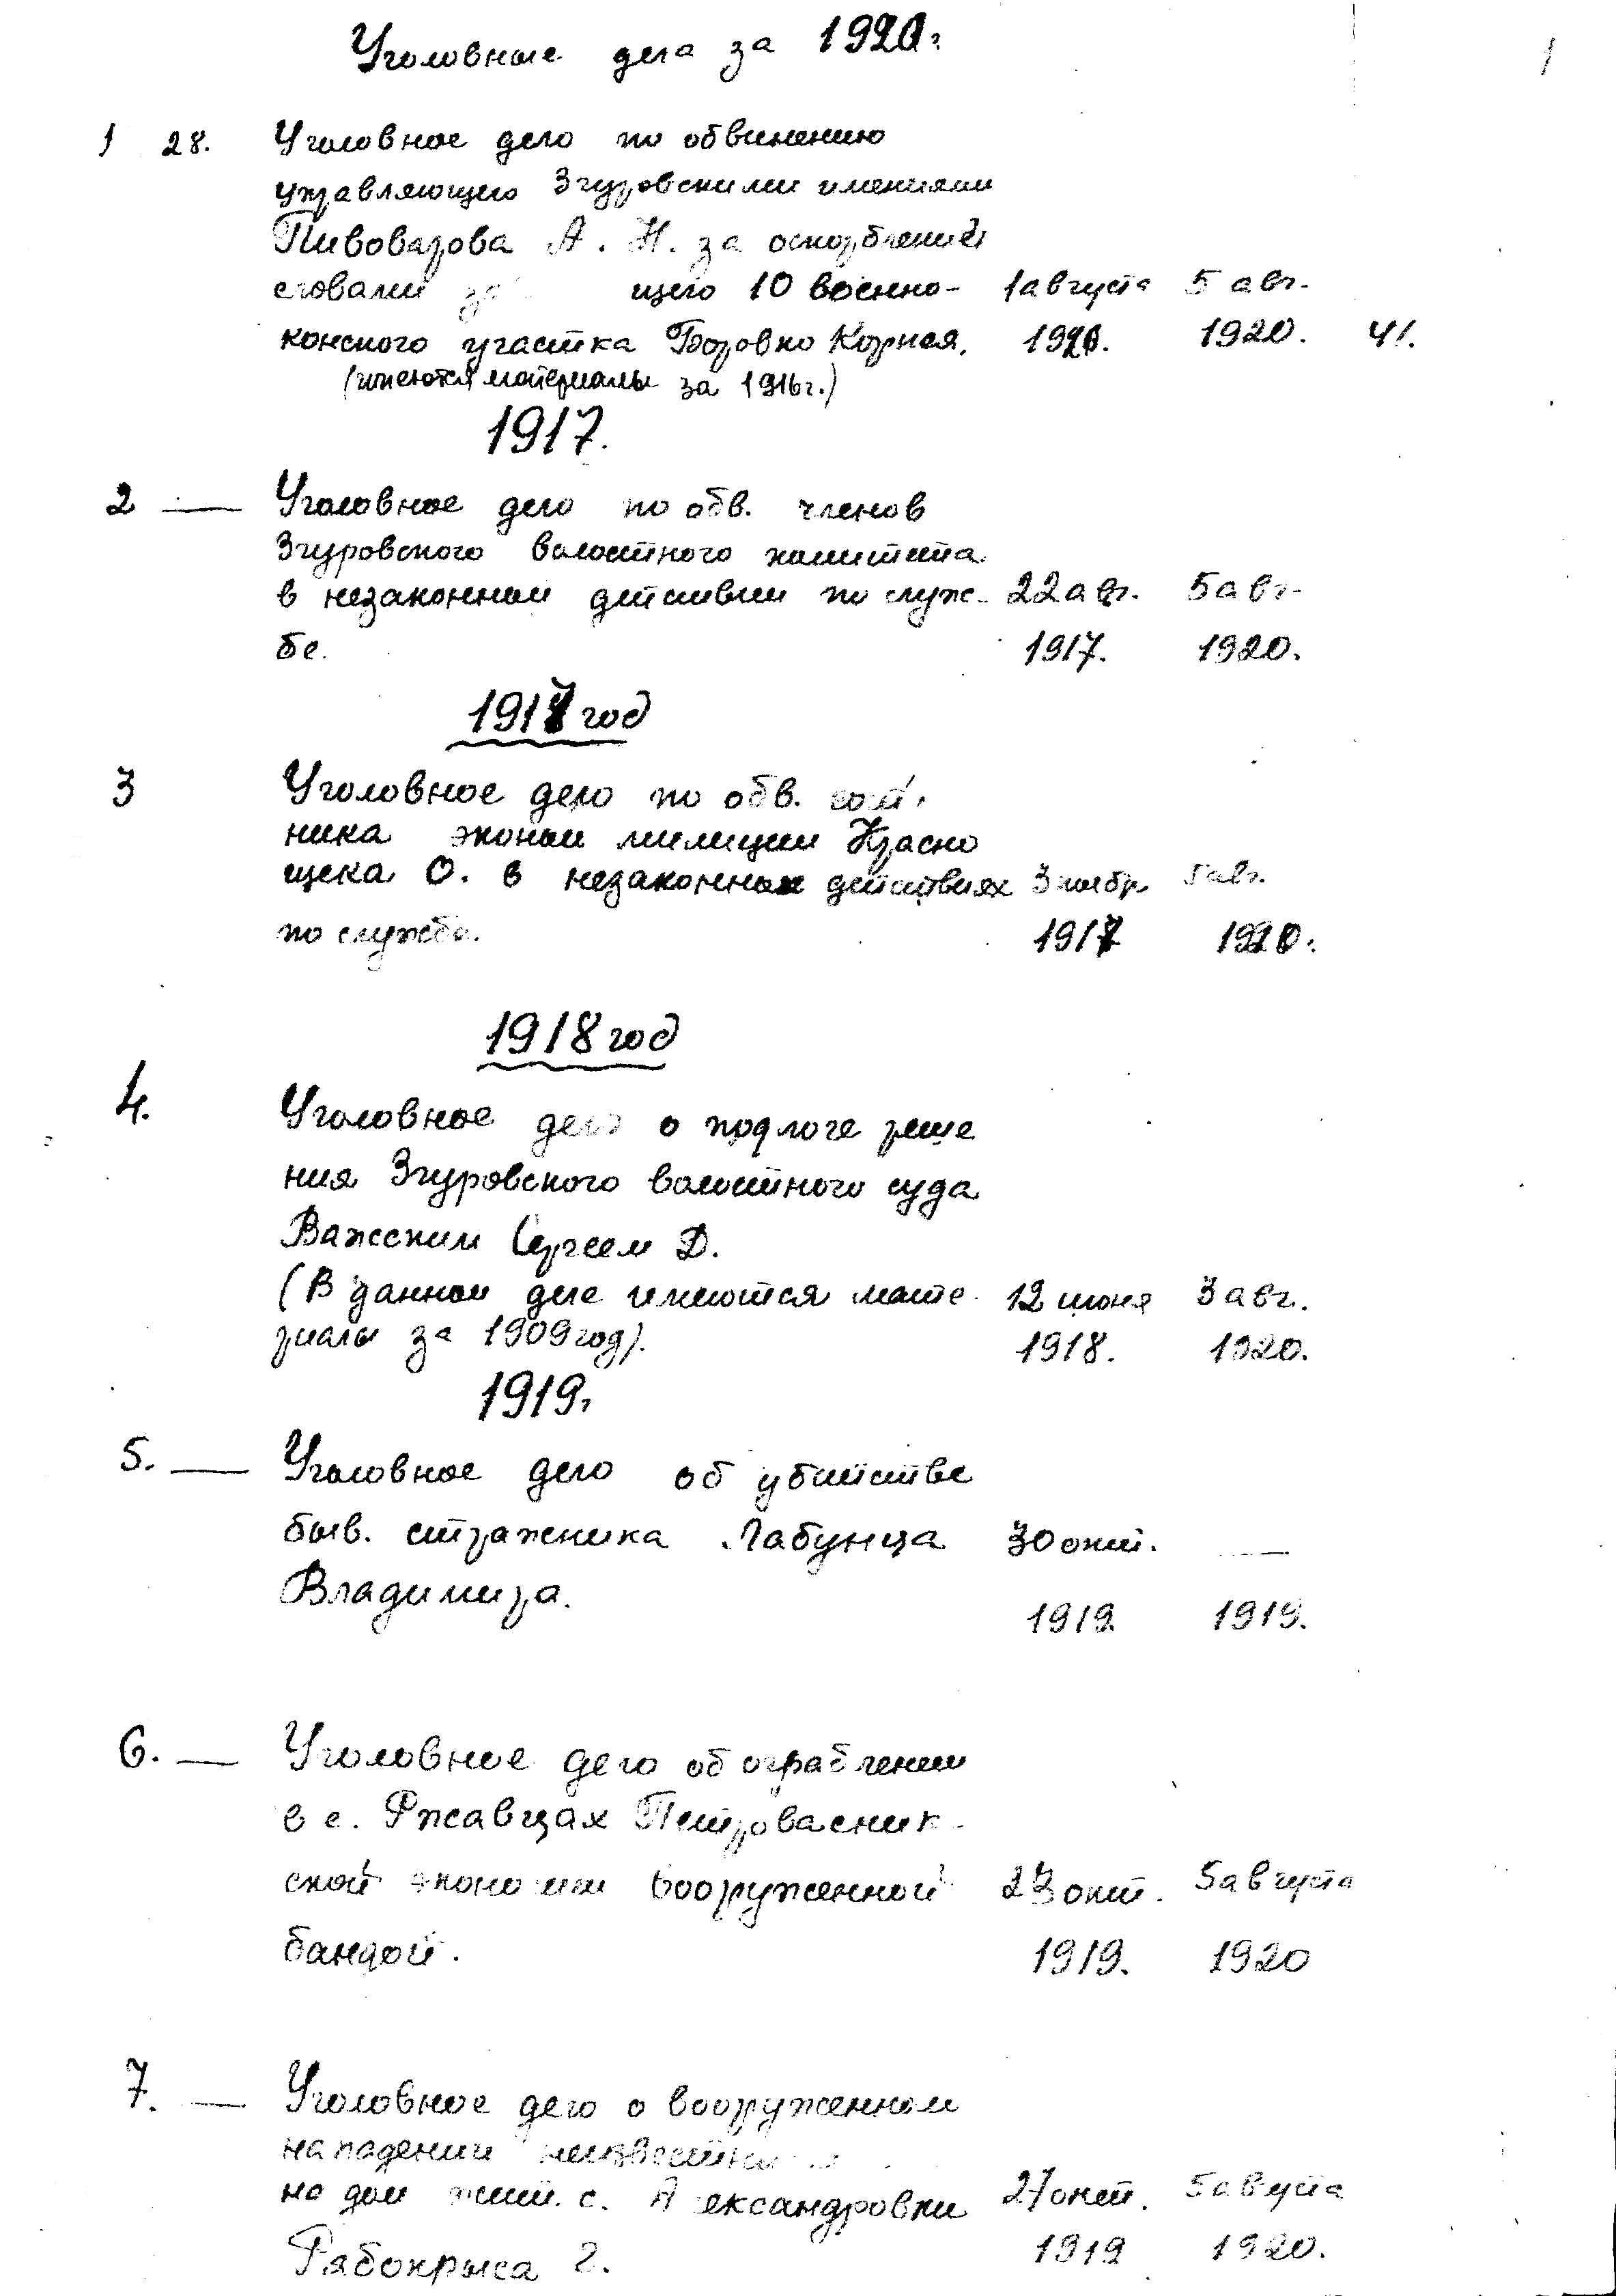 Уголовные дела за 1920г.
1
1 28. Уголовное дело по обвинению
управляющего Згуровскими имениями
Пивоварова А. Н. за оскорбление
словами щего 10 военно- 1 августа 5 авг.
конского участка Боровко Корнея. 1920. 1920. 41.
(имеются материалы за 1916г.)
1917.
2 — Уголовное дело по обв. членов
Згуровского волостного комитета
в незаконном действии по служ- 22 авг. 5 авг.
бе. 1917. 1920.
1917 год
3 Уголовное дело по обв.
ника эконом милиции Красно
щека О. в незаконных действиях 3 ноябр. 5 авг.
по службе. 1917 1920.
1918 год
4. Уголовное дело о подлоге реше
ния Згуровского волостного суда
Важским Сергеем Д.
(В данном деле имеются мате- 12 июня 3 авг.
риалы за 1909 год). 1918. 1920.
1919.
5. — Уголовное дело об убийстве
быв. стражника Лабунца 30 окт. —
Владимира. 1919. 1919.
6. — Уголовное дело об ограблении
в с. Ржавцах Петровасник-
ской экономии вооруженной 23 окт. 5 августа
бандой. 1919. 1920
7. — Уголовное дело о вооруженном
нападении
на дом жит. с. Александровки 27 окт. 5 августа
Рябокрыса Г. 1919 1920.